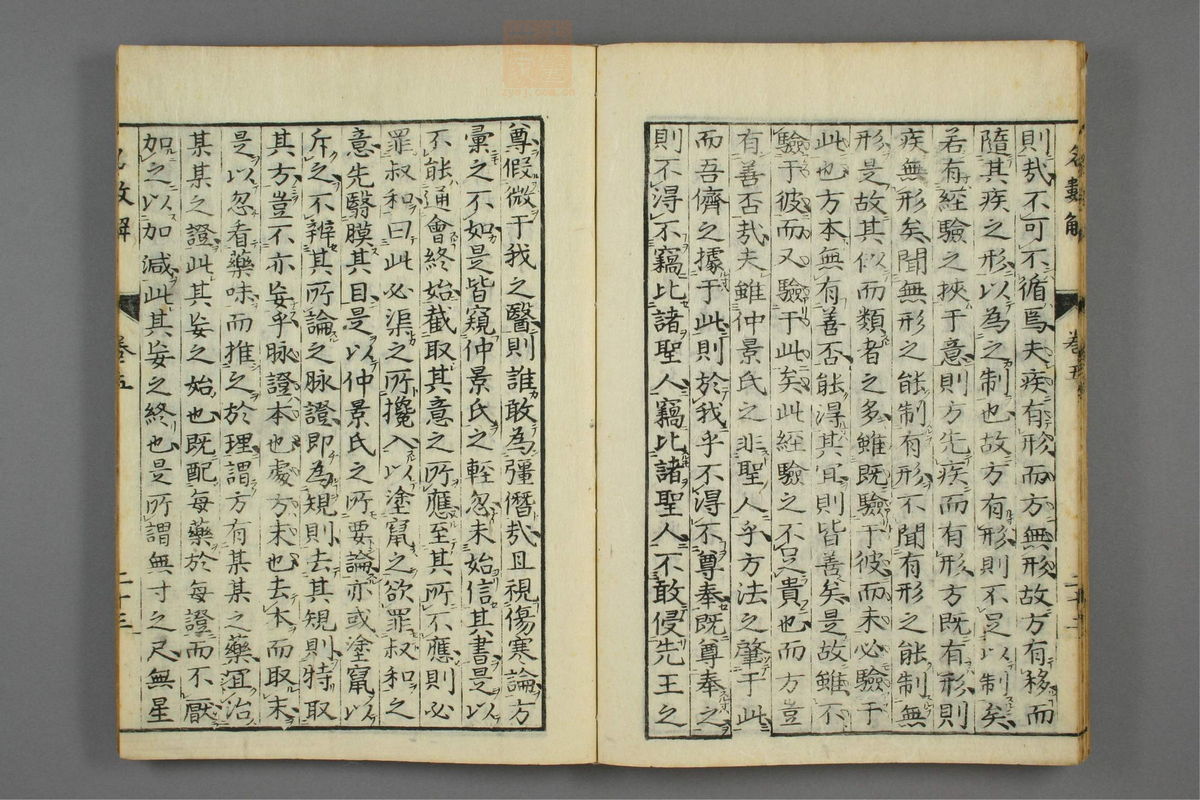 則哉不可不循焉夫疾有形而方無形故方有移而
隨其疾之形以為之制也故方有形則不足以制矣
若有經驗之挾于意則方先疾而有形方既有形則
疾無形矣聞無形之能制有形不聞有形之能制無
形是故其似而類者之多雖既驗于彼而未必驗于
此也方本無有善否能得其宜則皆善矣是故雖不
驗于彼而又驗于此矣此經驗之不足貴也而方豈
有善否哉夫雖仲景氏之非聖人乎方法之肇于此
而吾儕之據于此則於我乎不得不尊奉既尊奉之
則不得不竊比諸聖人竊比諸聖人不敢侵先王之
卷五
尊假微于我之醫則誰敢為彊僭哉且視傷寒論方
彙之不如是皆窺仲景氏之輕忽未始信其書是以
不能通會終始截取其意之所應至其所不應則必
罪叔和曰此必渠之所攙入以塗竄之欲罪叔和之
意先翳膜其目是以仲景氏之所要論亦或塗竄以
斥之不辨其所論之脉證即為規則去其規則特取
其方豈不亦妄乎脉證本也處方末也去本而取末
是以忽看藥味而推之於理謂方有某某之藥宜治
某某之證此其妄之始也既配每藥於每證而不厭
加之以加減此其妄之終也是所謂無寸之尺無星
卷五
二十三